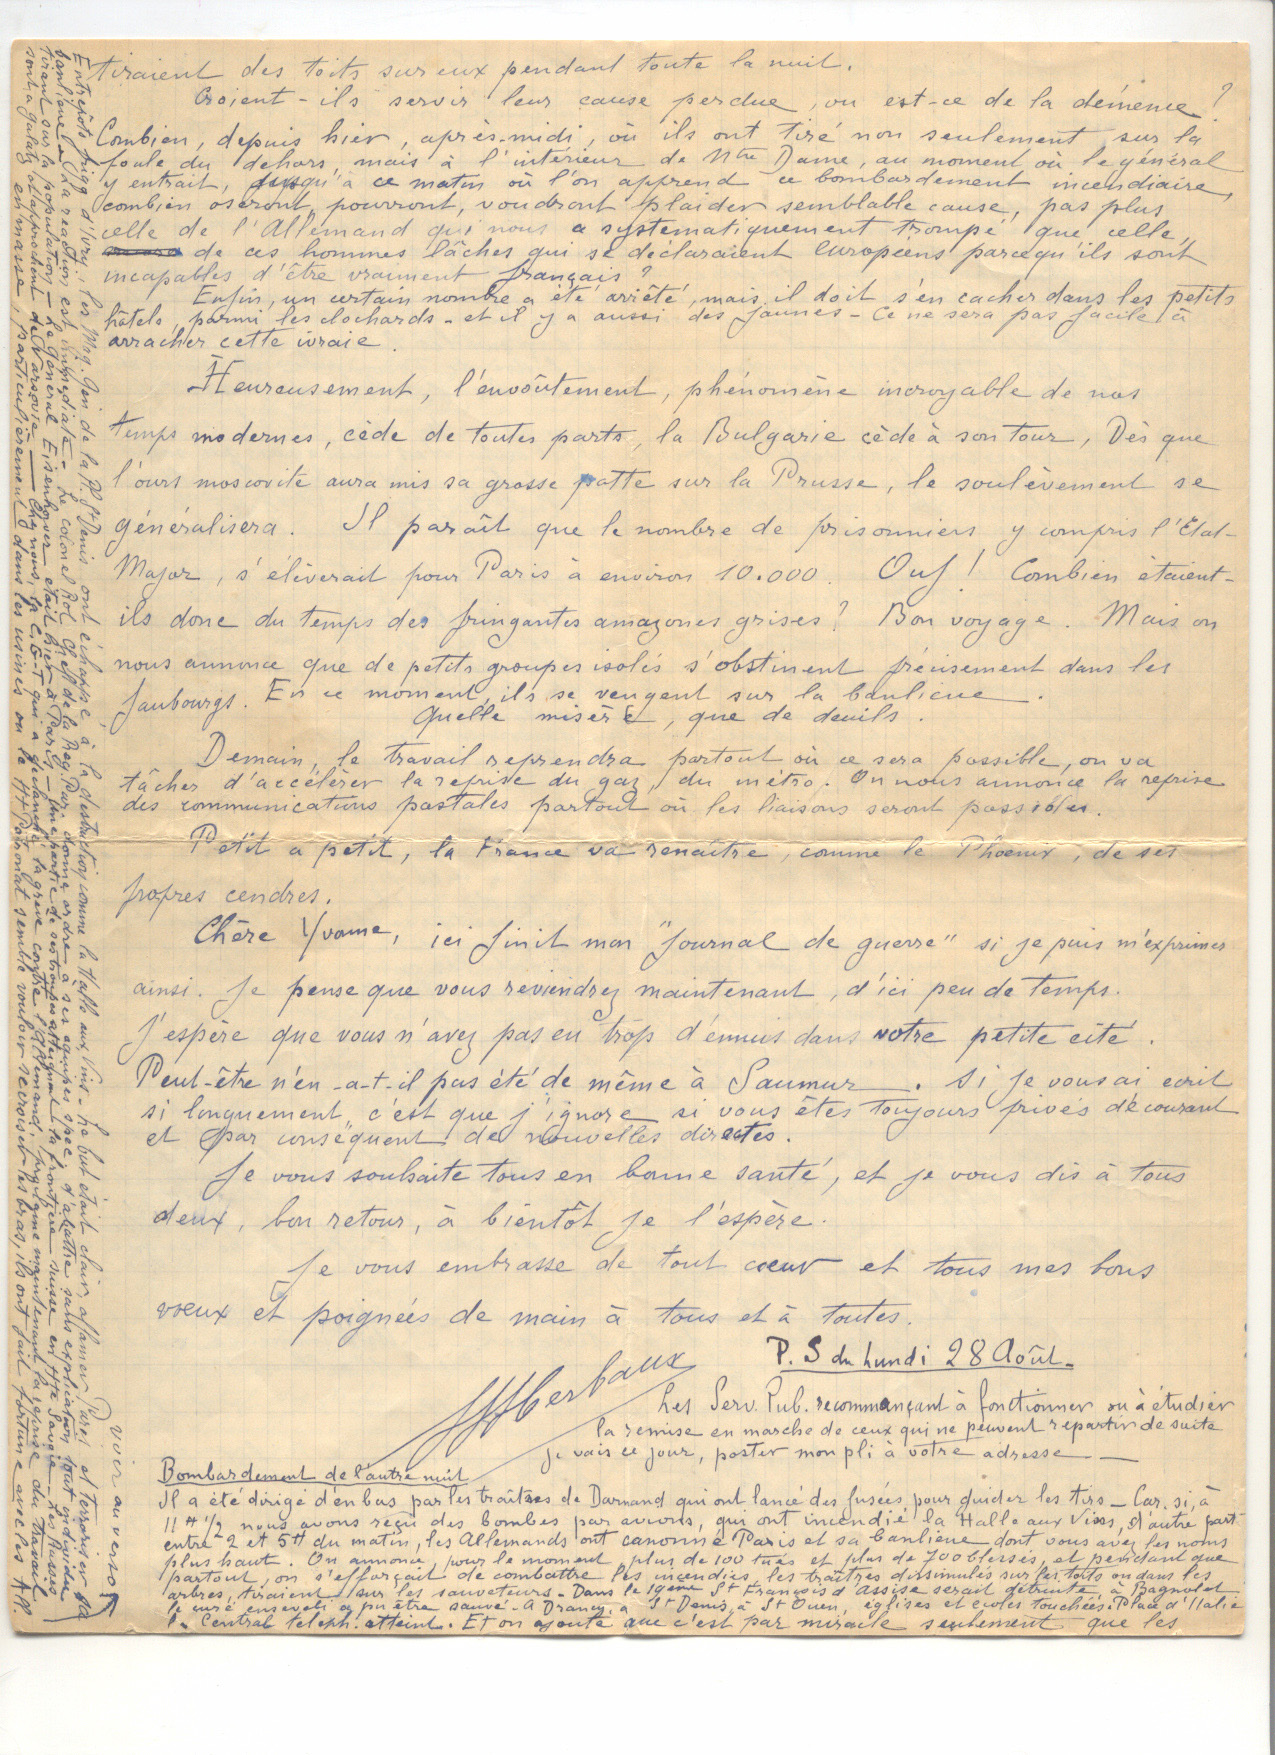 tiraient des toits sur eux pendant toute la nuit.
Croient-ils servir leur cause perdue, ou est-ce de la démence ?
Combien, depuis hier, après-midi, où ils ont tiré non seulement sur la
foule du dehors, mais à l'intérieur de Ntre Dame, au moment où le général
y entrait, jusqu'à ce matin où l'on apprend ce bombardement incendiaire,
combien oseront, pourront, voudront plaider semblable cause, pas plus
celle de l'Allemand qui nous a systématiquement trompé que celle,
de ces hommes lâches qui se déclaraient Européens parcequ'ils sont
incapables d'être vraiment français ?
Enfin, un certain nombre a été arrêté, mais il doit s'en cacher dans les petits
hôtels, parmi les clochards - et il y a aussi des jaunes - Ce ne sera pas facile à
arracher cette ivraie.
Heureusement, l'envoûtement, phénomène incroyable de nos
temps modernes, cède de toutes parts, la Bulgarie cède à son tour, Dès que
l'ours moscovite aura mis sa grosse patte sur la Prusse, le soulèvement se
généralisera. Il paraît que le nombre de prisonniers y compris l'Etat-
Major, s'élèverait pour Paris à environ 10.000. Ouf ! Combien étaient-
ils donc du temps des fringantes amazones grises ? Bon voyage. Mais on
nous annonce que de petits groupes isolés s'obstinent précisement dans les
faubourgs. En ce moment, ils se vengent sur la banlieue.
Quelle misère, que de deuils.
Demain, le travail reprendra partout où ce sera possible, on va
tâcher d'accélérer la reprise du gaz, du métro. On nous annonce la reprise
des communications postales partout où les liaisons seront possibles.
Petit a petit, la France va renaître, comme le Phoenix, de ses
propres cendres.
Chère Yvonne, ici finit mon "Journal de guerre" si je puis m'exprimer
ainsi. Je pense que vous reviendrez maintenant, d'ici peu de temps.
J'espère que vous n'avez pas eu trop d'ennuis dans votre petite cité.
Peut-être n'en-a-t-il pas été de même à Saumur. Si je vous ai ecrit
si longuement, c'est que j'ignore si vous êtes toujours privés de courant
et par conséquent de nouvelles directes.
Je vous souhaite tous en bonne santé, et je vous dis à tous
deux, bon retour, à bientôt je l'espère.
Je vous embrasse de tout coeur et tous mes bons
voeux et poignées de main à tous et à toutes.
P.S du Lundi 28 Août_
Les Serv. Pub. recommançant à fonctionner ou à étudier
la remise en marche de ceux qui ne peuvent repartir de suite
je vais ce jour, poster mon pli à votre adresse —
Bombardement de l'autre nuit
Il a été dirigé d'en bas par les traîtres de Darnand qui ont lancé des fusées, pour guider les tirs - Car, si, à
11 H 1/2 nous avons reçu des bombes par avions, qui ont incendié la Halle aux Vins, d'autre part
entre 2 et 5 H du matin, les Allemands ont canonné Paris et sa banlieue dont vous avez les noms
plus haut. On annonce, pour le moment, plus de 100 tués et plus de 700 blessés, et pendant que
partout, on s'efforçait de combattre les incendies, les traîtres dissimulés sur les toits ou dans les
arbres, tiraient sur les sauveteurs - Dans le 19ème St François d'Assise serait détruite, à Bagnolet
le curé enseveli a pu être sauvé - A Drancy, à St Denis, à St Ouen, églises et ecoles touchées. Place d'Italie
le Central teleph. atteint. Et on ajoute que c'est par miracle seulement que les
Entrepôts frigo d'Ivry, les Mag. Gén. de la Pl. St Denis ont échappé à la destruction comme la Halle aux Vins - Le but était clair, affamer Paris et terroriser la
banlieue - La reaction est immédiate - Le colonel Rol, chef de la Reg. Par. donne ordre à ses equipes spec. d'abattre sans explication tout individu
tirant sur la population - Le Général Eisenhower était hier à Paris - Une partie de ses troupes atteignent la frontière suisse en Hte Savoie - Les Russes
sont à Galatz et approchent de Varsovie — Chez nous, la C.G.T qui a declanché la grève contre l'Allemand, prolgue maintenant la reprise du travail
en masse, particulièrement dans les usines ou le Hx Patronat semble vouloir se croiser les bras, ils ont fait fortune avec les All.
voir au verso